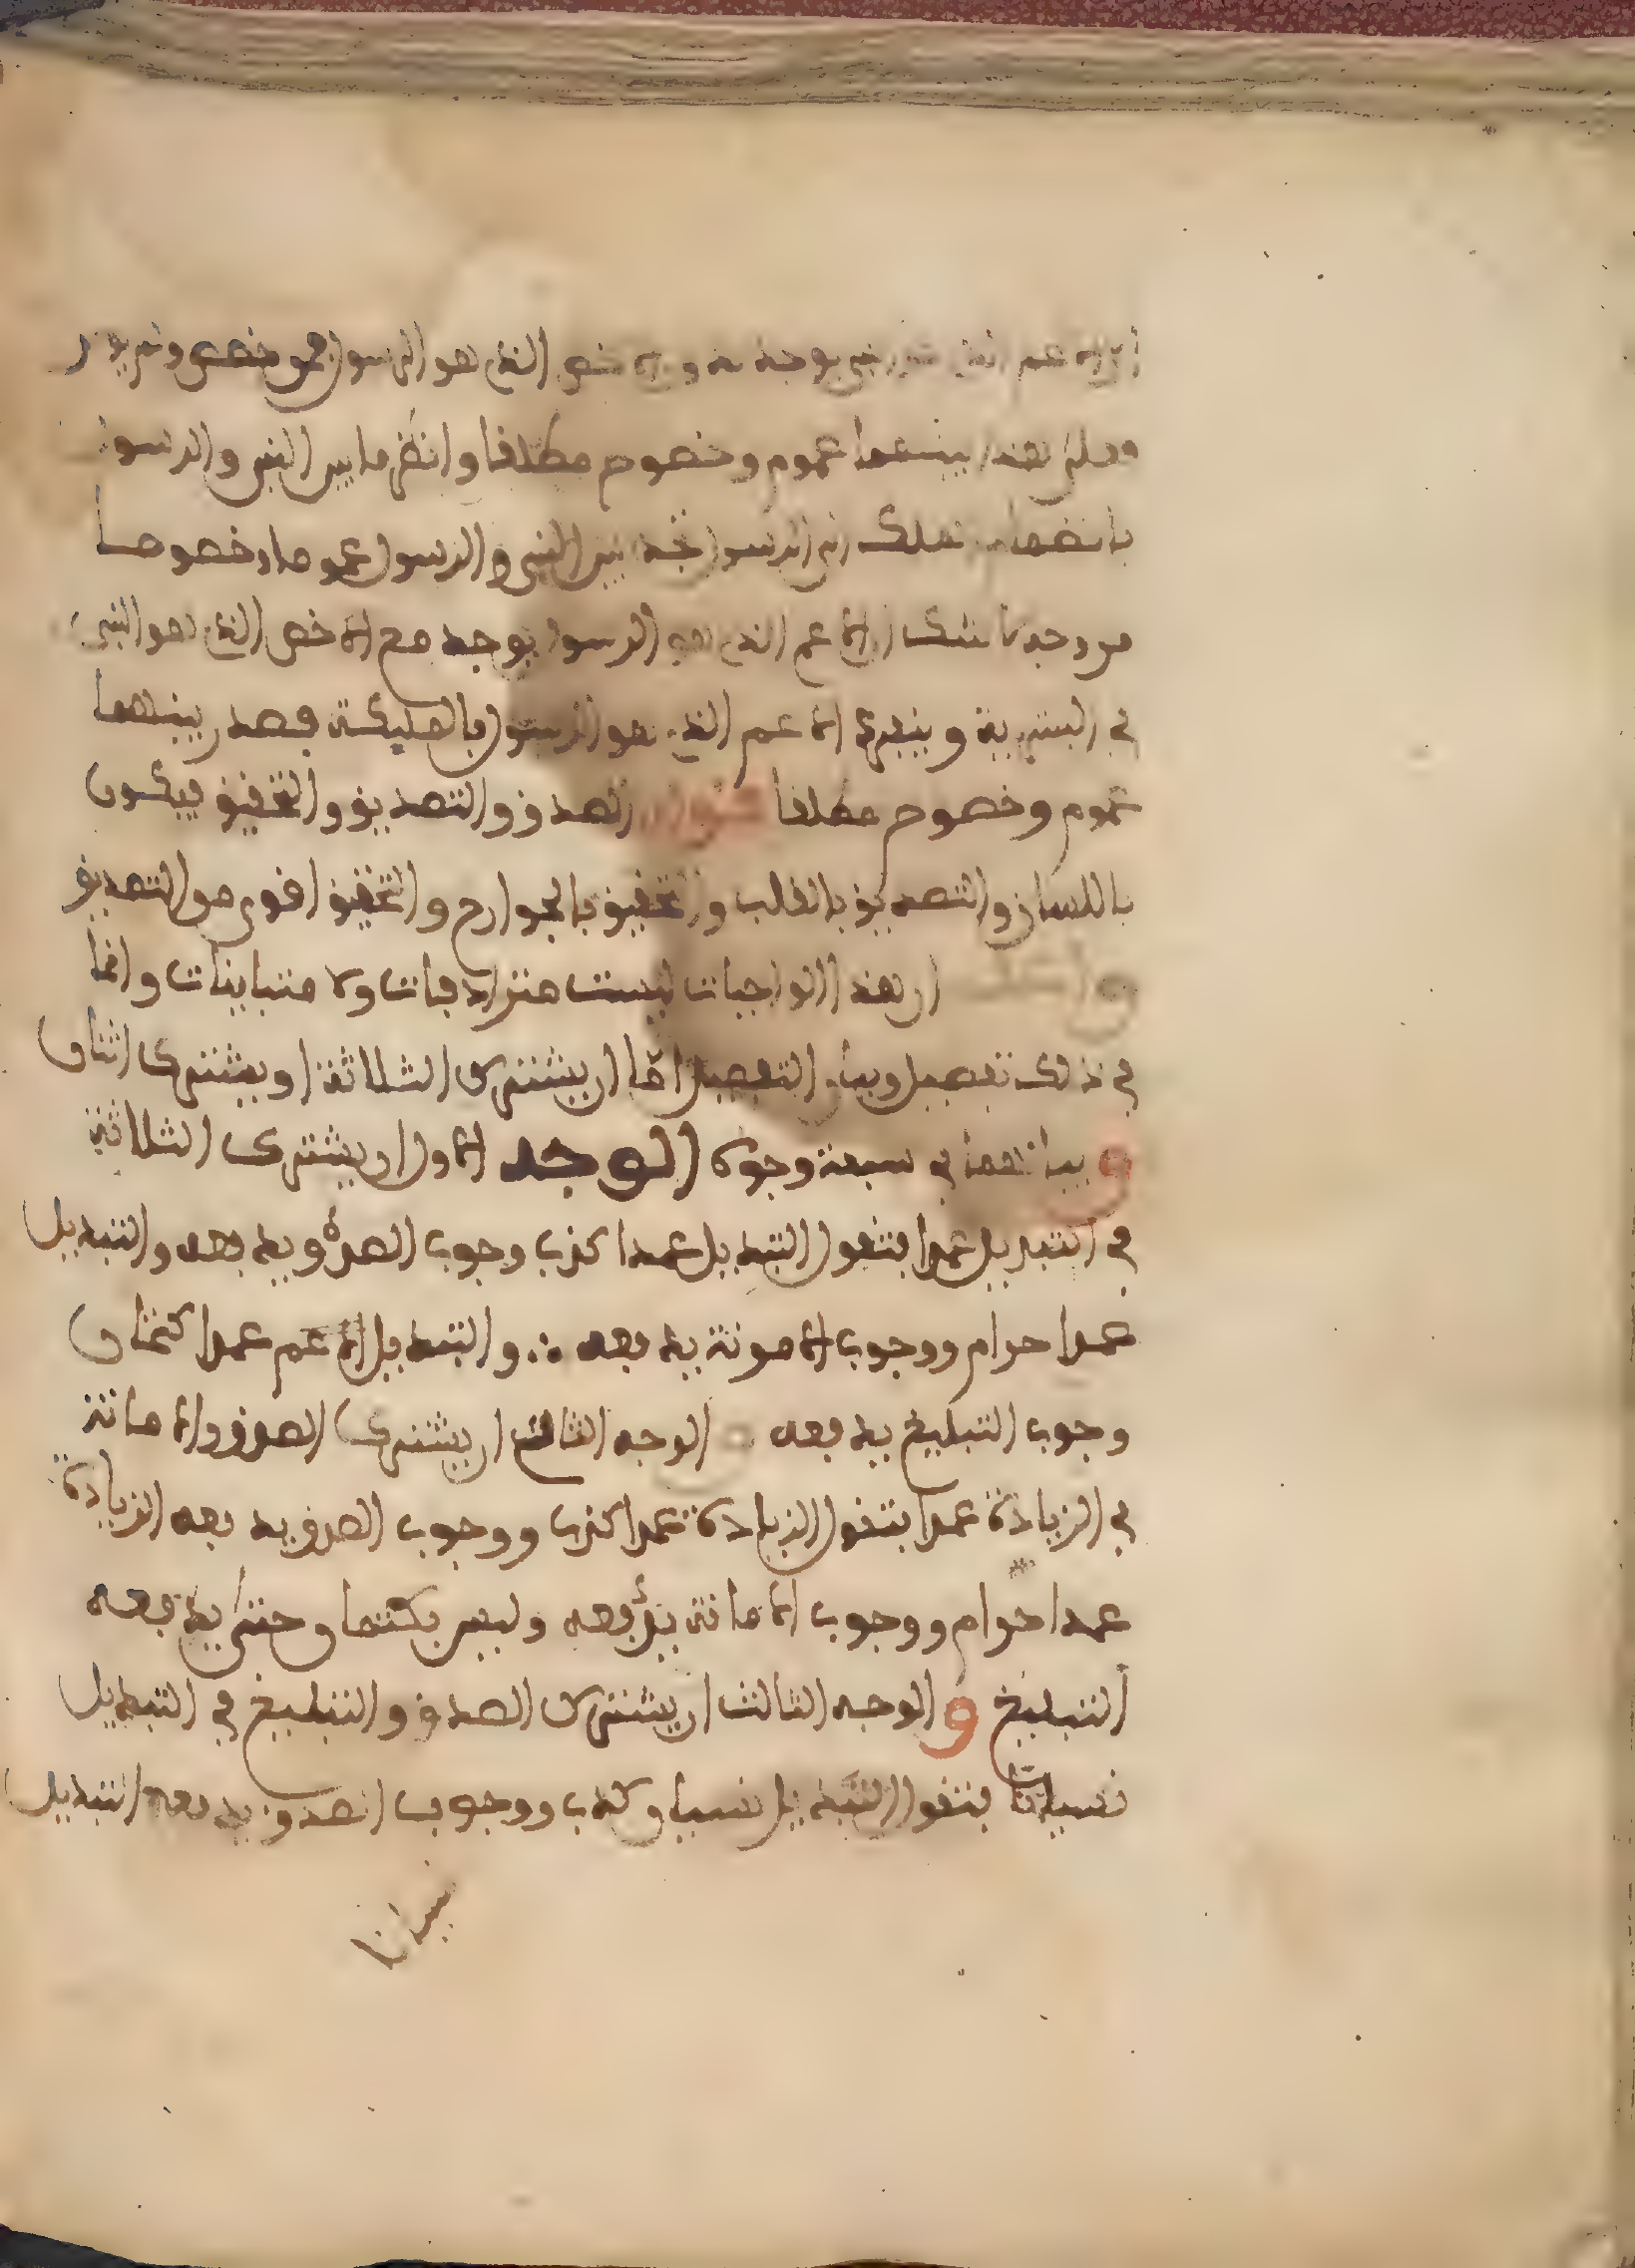 الاعم الذي هو النبي يوجد مع الاخص الذي هو الرسول فمن خصص
وعلى هذا بينهما عموم وخصوص مطلقا وانظر ما بين النبي والرسول
بين النبي والرسول عموما وخصوصا
من وجه لا شك ان الاعم الذي هو الرسول يوجد مع الاخص الذي هو النبي
في البشرية وينفرد الاعم الذي هو الرسول بالمليكة فهذ بينهما
عموم وخصوص مطلقا الصدق والتصديق والتحقيق فيكون
باللسان والتصديق بالقلب والتحقيق بالجوارح والتحقيق اقوى من التصديق
ان هذه الواجبات ليست مترادفات ولا متباينات وانما
في ذلك تفصيل وبيان التفصيل اما ان يشترك الثلاثة او يشترك اثنان
وبيانهما في سبعة وجوه الوجه الاول ان يشترك الثلاثة
في التبديل عمدا فتقول التبديل عمدا كذب وجوب الصدق يدفعه والتبديل
عمدا حرام ووجوب الامونة يدفعه والتبديل الاعم عمدا كتمان
وجوب التبليغ يدفعه الوجه الثالث ان يشترك الصدق والامانة
في الزيادة عمدا فتقول الزيادة عمدا كذب ووجوب الصدق يدفعه الزيادة
عمدا حرام ووجوب الامانة يدفعه وليس بكتمان حتى يدفعه
التبليغ والوجه الثالث ان يشترك الصدق والتبليغ في التبديل
نسيانا فتقول التبديل نسيان كذب ووجوب الصدق يدفعه التبديل
نسيانا